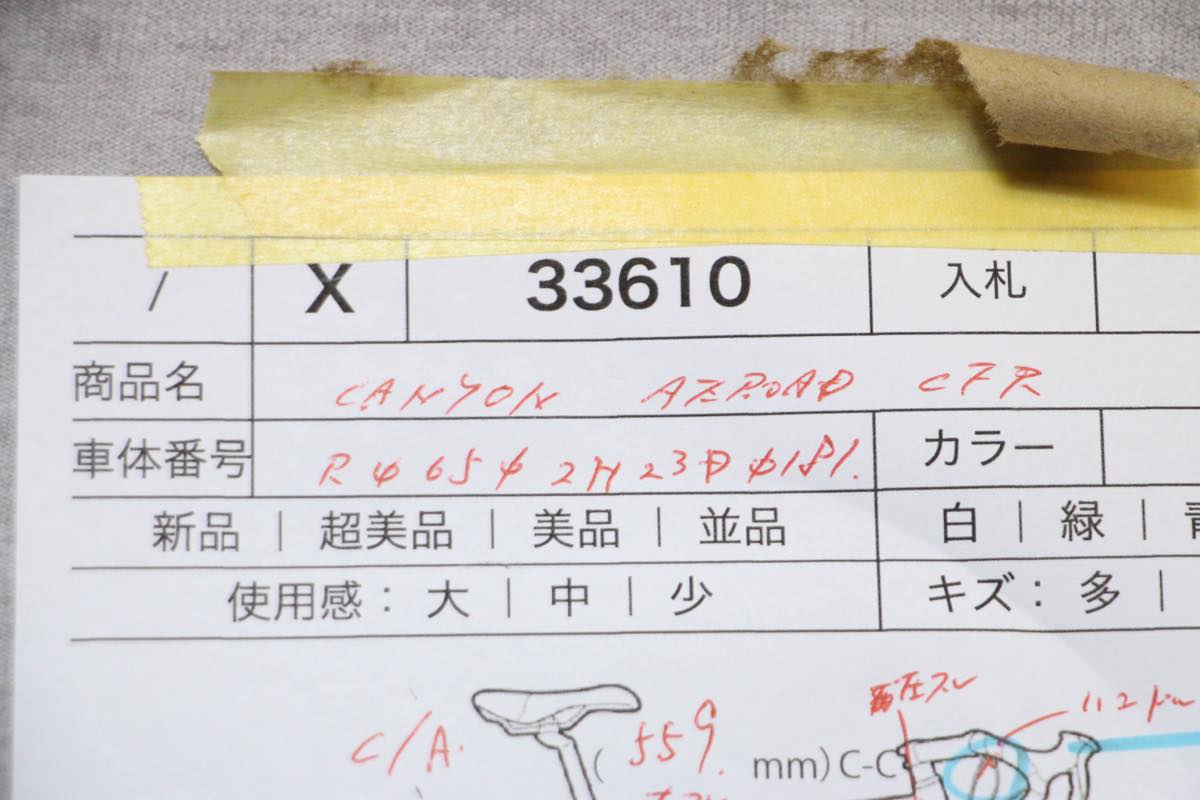 / X 33610 入札
商品名 CANYON AEROAD CFR
車体番号 R06502N23D0181. カラー
新品 | 超美品 | 美品 | 並品 白 | 緑 |
使用感： 大 | 中 | 少 キズ： 多 |
C/A. (559. mm)C-C